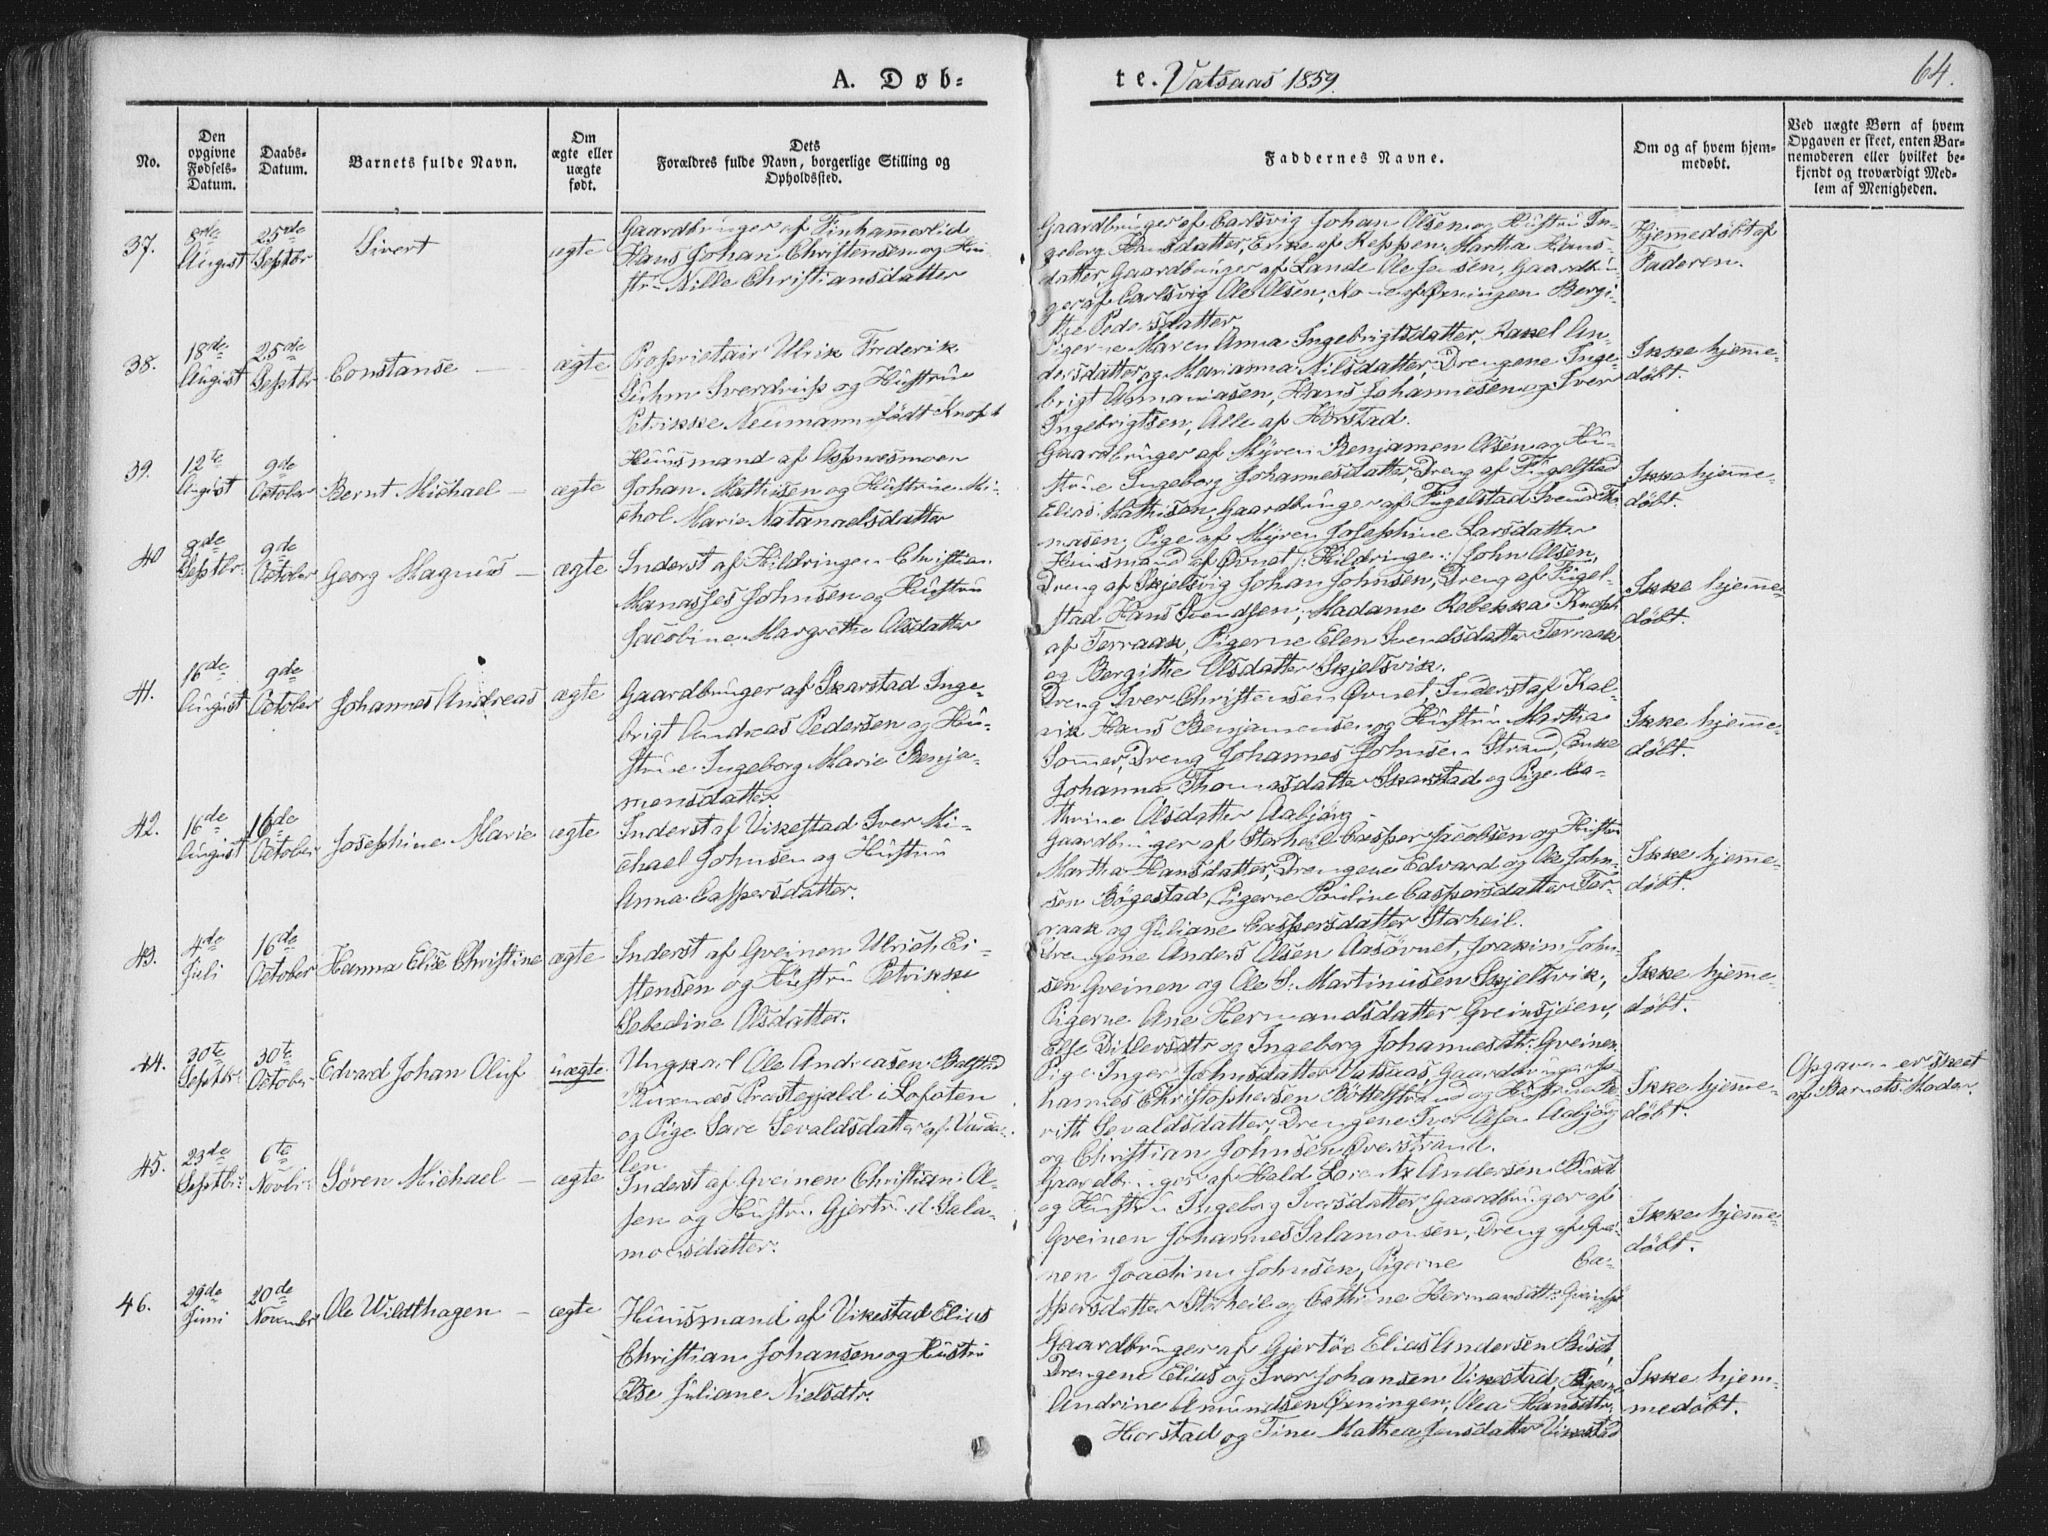 A. Døb-
te. Vatsaas 1859.
64.
No.
Den
opgivne
Fødsels-
Datum.
Daabs-
Datum.
Barnets fulde Navn.
Om
ægte eller
uægte
født.
Dets
Forældres fulde Navn, borgerlige Stilling og
Opholdssted.
Faddernes Navne.
Om og af hvem hjem-
medøbt.
Ved uægte Børn af hvem
Opgaven er skeet, enten Bar-
nemoderen eller hvilket be-
kjendt og troværdigt Med-
lem af Menigheden.
37.
8de
August
25de
Septbr
Sivert
ægte
Gaardbruger af
Hans Johan Christensen og Hu-
stru Nille Christiansdatter
Gaardbruger af Carlsvig Johan Olsen og Hustru In-
geborg Hansdatter, Enke af Reppen Martha Hans-
datter, Gaardbruger af Lande Ole Jensen, Gaardbru-
ger af Carlsvig Ole Olsen, Kone af Øxningen Bergi-
the Pedersdatter
Hjemedøbt af
Faderen.
38.
18de
August
25de
Septbr
Constanse
ægte
Proprietair Ulrik Frederik
Suhm Sverdrup og Hustrue
Petrikke Neumann födt Knoph
Pigerne Maren Anna Ingebrigtsdatter, Rakel An-
dersdatter og Marianna Nilsdatter, Drengene Inge-
brigt Asmaniasen, Hans Johannesen og Iver
Ingebrigtsen, Alle af Horstad.
Ikke hjemme-
døbt.
39.
12te
August
9de
October
Bernt Michael
ægte
Huusmand af Aspnæsmoen
Johan Mathisen og Hustrue Mi-
chol. Marie Natanaelsdatter
Gaardbruger af Myren Benjamen Olsen og Hu-
strue Ingeborg Johannesdatter, Dreng af Fugelstad
Elias Mathisen, Gaardbruger af Fugelstad Svend
masen, Pige af Myren Josephine Larsdatter
Ikke hjemme-
døbt.
40
9de
Septbr.
9de
October
Georg Magnus
ægte
Inderst af Hildringen Christian
Manasses Johnsen og Hustru
Jacobine Margrethe Olsdatter
Huusmand af Øvnet /: Hildringen :/ John Olsen,
Dreng af Skjelsvig Johan Johnsen, Dreng af Fugel-
stad Hans Svendsen, Madame Rebekka Knoph
af Terraak, Pigerne Elen Svendsdatter Terraak
og Bergithe Olsdatter Skjelsvik.
Ikke hjemme-
døbt.
41.
16de
August
9de
October
Johannes Andreas
ægte
Gaardbruger af Skarstad Inge-
brigt Andreas Pedersen og Hu-
strue Ingeborg Marie Benja-
mensdatter
Dreng Iver Christensen Øvnet, Inderst af Kal-
vik Hans Benjamensen og Hustru Martha
Sommer, Dreng Johannes Johnsen Strand, Enke
Johanna Thomasdatter Skarstad og Pige Ca-
thrine Olsdatter Aabjörg
Ikke hjemme-
døbt.
42.
16de
August
16de
October
Josephine Marie
ægte
Inderst af Vikestad Iver Mi-
chael Johnsen og Hustru
Anna Caspersdatter.
Gaardbruger af Storheil Casper Jacobsen og Hustru
Martha Hansdatter, Drengene Edvard og Ole John-
sen Bøgestad, Pigerne Pauline Caspersdatter Ter-
raak og Juliane Caspersdatter Storheil.
Ikke hjemme-
døbt.
43.
4de
Juli
16de
October
Hanna Elise Christine
ægte
Inderst af Gveinen Ulrich Ei-
stensen og Hustru Petrikke
Sebedine Olsdatter.
Drengene Anders Olsen Aasövnet, Joakim John-
sen Gveinen og Ole S. Martinusen Skjelsvik,
Pigerne Ane Hermandsdatter Gveinsjøen,
Else Ditlevsdtr og Ingeborg Johannesdtr. Gveinen
Ikke hjemme-
døbt.
44.
30te
Septbr.
30te
October
Edvard Johan Oluf
uægte.
Ungkarl Ole Andreasen Balstad
Buxnæs Præstegjald i Lofoten
og Pige Sare Sevaldsdatter af Vasda-
len
Pige Inger Johnsdatter Vatsaas, Gaardbruger Jo-
hannes Christophersen Böttelstrand og Hustrue Be-
rith Sevaldsdatter, Drengene Iver Olsen Aabjörg
og Christian Johnsen Øverstrand.
Ikke hjemme-
døbt.
Opgaven er skeet
af Barnets Moder.
45.
23de
Septbr.
6te
Novbr.
Sören Michael
ægte
Inderst af Gveinen Christian Ol-
sen og Hustru Gjertrud Sala-
monsdatter.
Gaardbruger af Hald Lorentz Andersen Buset
og Hustru Ingeborg Iversdatter, Gaardbruger af
Gveinen Johannes Salamonsen, Dreng af Gvei-
nen Joachim Johnsen, Pigerne Ca-
spersdatter Storheil og Cathrine Hermansdtr.
Ikke hjemme-
døbt.
46.
29de
Juni
20de
Novembr
Ole Wildthagen
ægte
Huusmand af Vikestad Elias
Christian Johansen og Hustru
Else Juliane Nielsdtr.
Gaardbruger af Gjertöe Elias Andersen Buset,
Drengene Elias og Iver Johansen Vikestad, Pigerne
Andrine Amundsen Øxningen, Olea Hansdtr.
Horstad og Tine Mathea Jensdatter Vikestad
Ikke hjem-
medøbt.